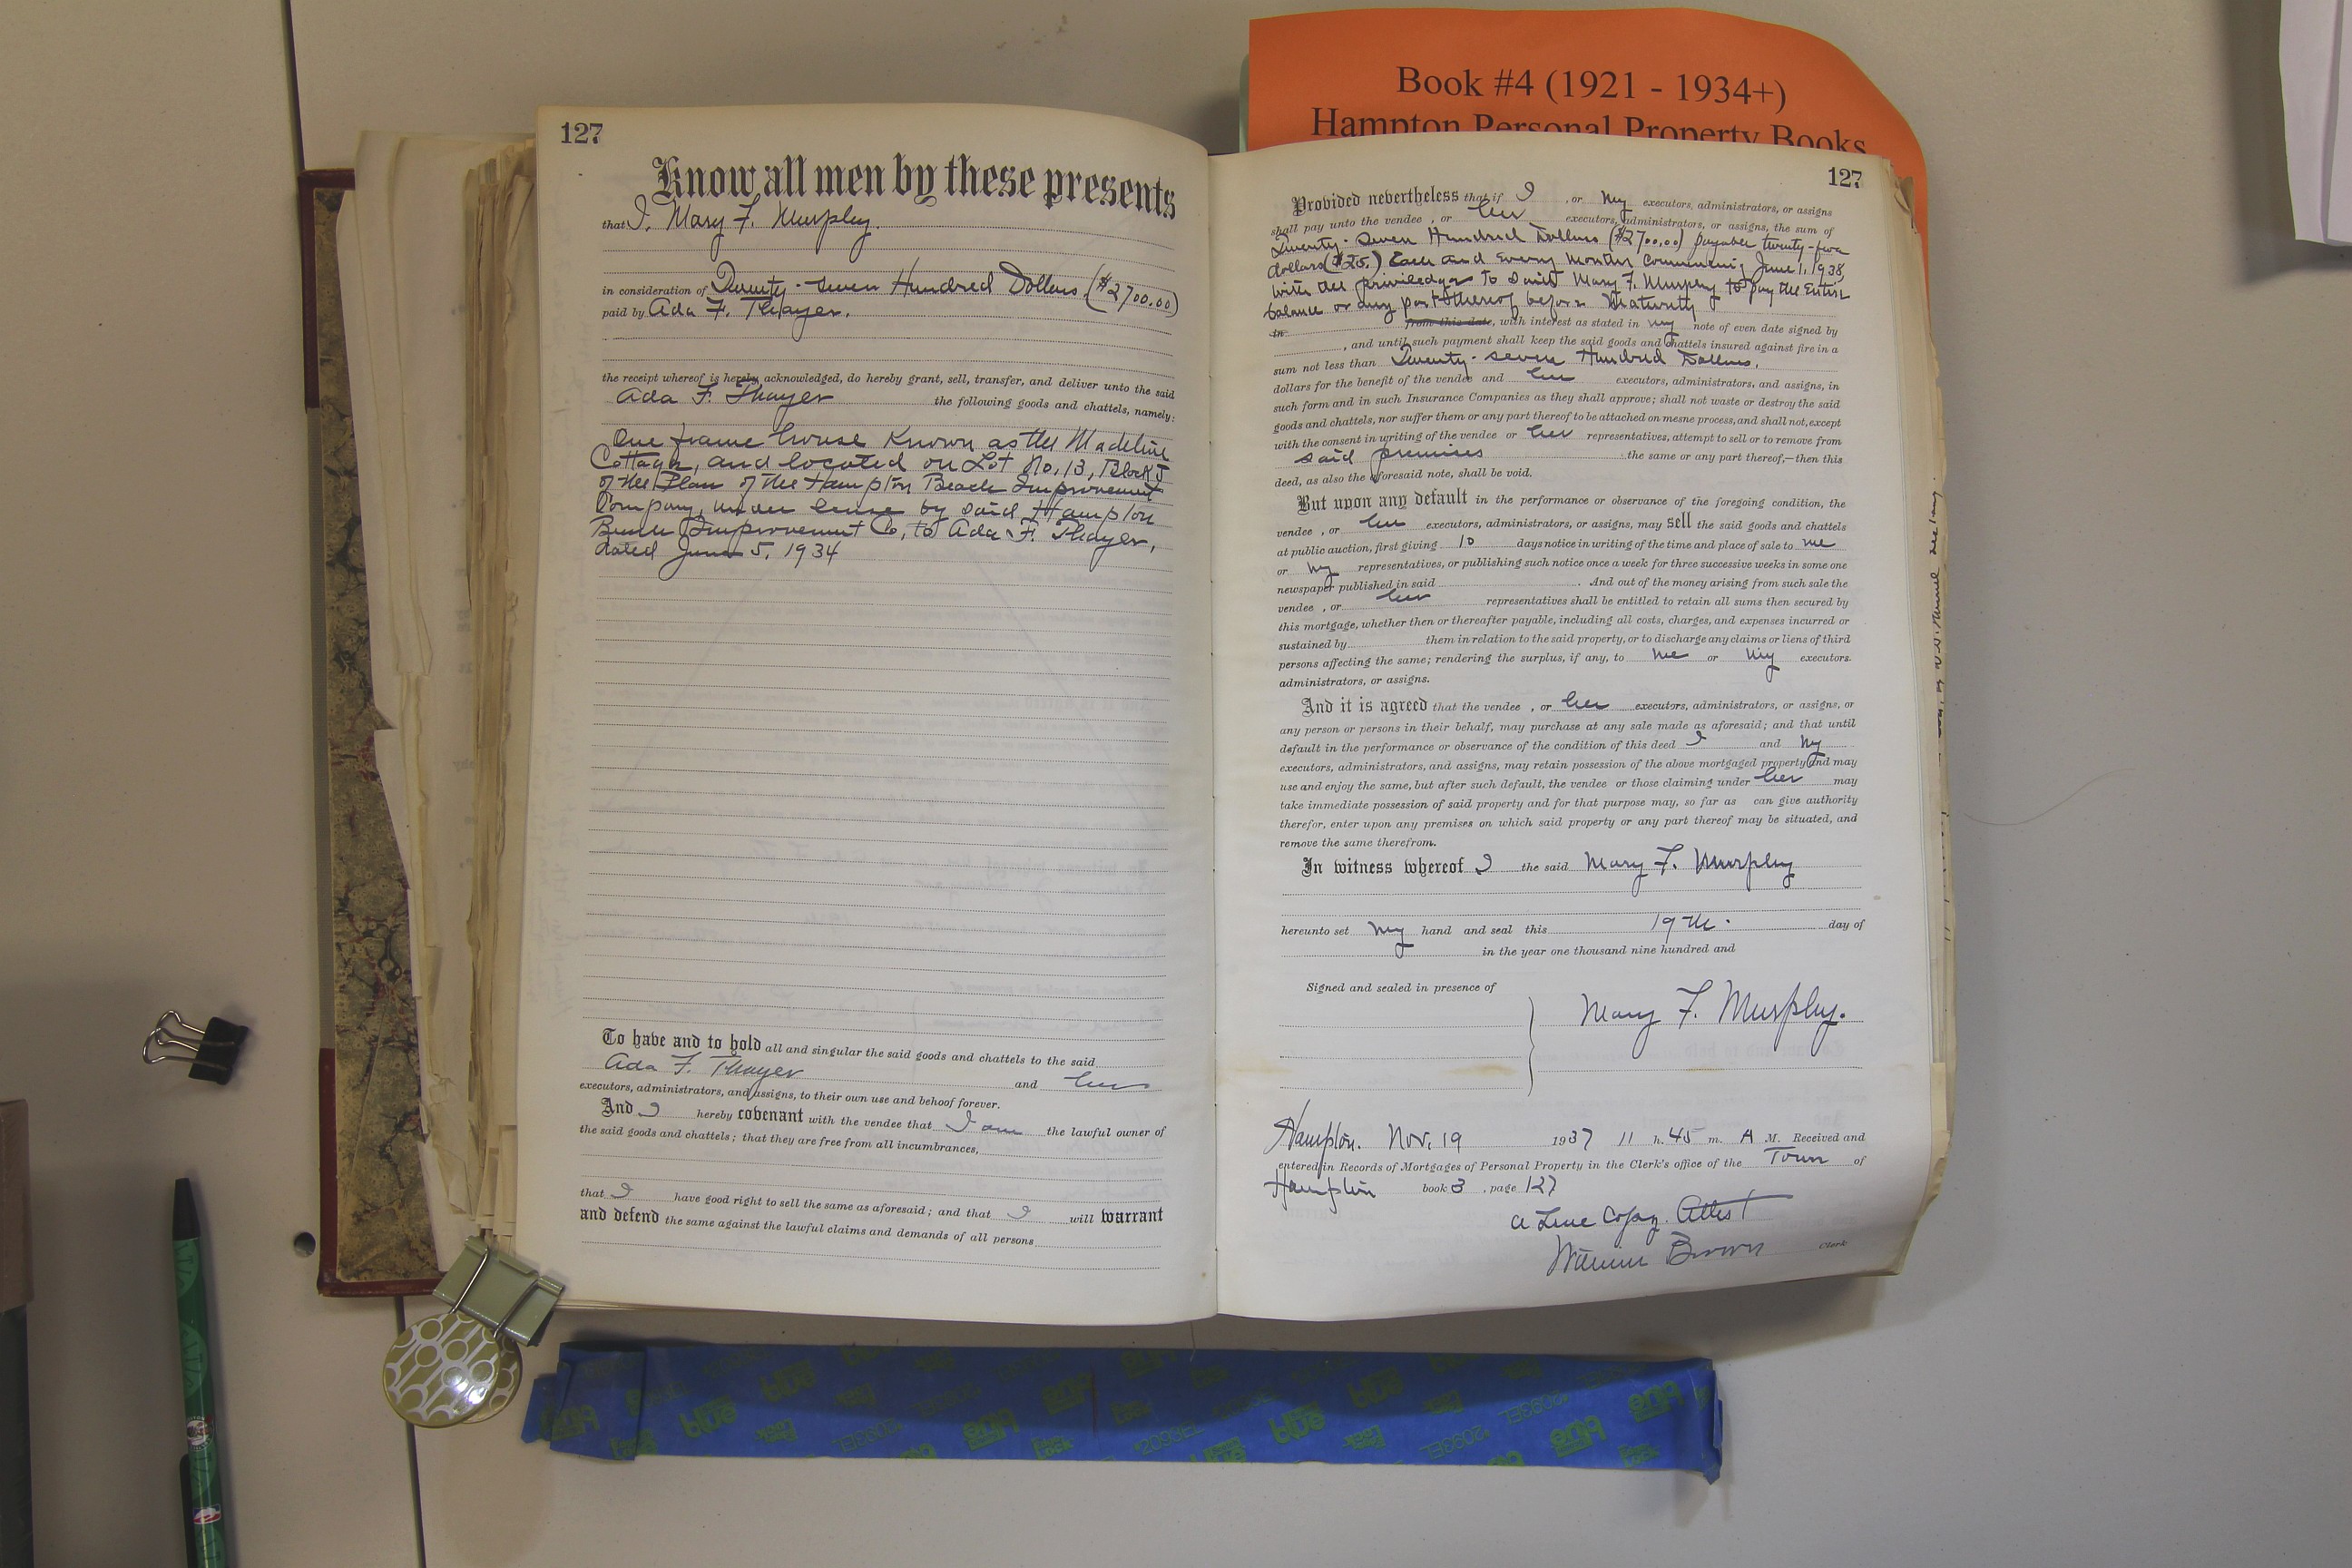 Book #4 (1921 - 1934+)
Hampton Personal Property Books
127
Know all men by these presents
that I, Mary F. Murphy.
in consideration of Twenty-seven Hundred Dollars ($2700.00)
paid by Ada F. Thayer.
the receipt whereof is hereby acknowledged, do hereby grant, sell, transfer, and deliver unto the said
Ada F. Thayer the following goods and chattels, namely:
One frame house Known as the Madeline
Cottage, and located on Lot No. 13, Block J
of the Plan of the Hampton Beach Improvement
Company, under lease by said Hampton
Beach Improvement Co, to Ada F. Thayer,
dated June 5, 1934
To have and to hold all and singular the said goods and chattels to the said
Ada F. Thayer and her
executors, administrators, and assigns, to their own use and behoof forever.
And I hereby covenant with the vendee that I am the lawful owner of
the said goods and chattels; that they are free from all incumbrances,
that I have good right to sell the same as aforesaid; and that I will warrant
and defend the same against the lawful claims and demands of all persons
127
Provided nevertheless that if I , or my executors, administrators, or assigns
shall pay unto the vendee , or her executors, administrators, or assigns, the sum of
Twenty-seven Hundred Dollars ($2700.00) payable twenty-five
dollars ($25.) Each and Every month commencing June 1, 1938,
with the priviledge to said Mary F. Murphy to pay the Entire
balance or any part thereof before maturity
in from this date, with interest as stated in my note of even date signed by
, and until such payment shall keep the said goods and chattels insured against fire in a
sum not less than Twenty-seven Hundred Dollars.
dollars for the benefit of the vendee and her executors, administrators, and assigns, in
such form and in such Insurance Companies as they shall approve; shall not waste or destroy the said
goods and chattels, nor suffer them or any part thereof to be attached on mesne process, and shall not, except
with the consent in writing of the vendee or her representatives, attempt to sell or to remove from
said premises the same or any part thereof,—then this
deed, as also the aforesaid note, shall be void.
But upon any default in the performance or observance of the foregoing condition, the
vendee , or her executors, administrators, or assigns, may sell the said goods and chattels
at public auction, first giving 10 days notice in writing of the time and place of sale to me
or my representatives, or publishing such notice once a week for three successive weeks in some one
newspaper published in said . And out of the money arising from such sale the
vendee , or her representatives shall be entitled to retain all sums then secured by
this mortgage, whether then or thereafter payable, including all costs, charges, and expenses incurred or
sustained by them in relation to the said property, or to discharge any claims or liens of third
persons affecting the same; rendering the surplus, if any, to me or my executors.
administrators, or assigns.
And it is agreed that the vendee , or her executors, administrators, or assigns, or
any person or persons in their behalf, may purchase at any sale made as aforesaid; and that until
default in the performance or observance of the condition of this deed I and my
executors, administrators, and assigns, may retain possession of the above mortgaged property and may
use and enjoy the same, but after such default, the vendee or those claiming under her may
take immediate possession of said property and for that purpose may, so far as can give authority
therefor, enter upon any premises on which said property or any part thereof may be situated, and
remove the same therefrom.
In witness whereof I the said Mary F. Murphy
hereunto set my hand and seal this 19th. day of
in the year one thousand nine hundred and
Signed and sealed in presence of
Mary F. Murphy.
Hampton. Nov. 19 1937 11 h. 45 m. A M. Received and
entered in Records of Mortgages of Personal Property in the Clerk's office of the Town of
Hampton book 3 , page 127
A True Copy. Attest
William Brown Clerk